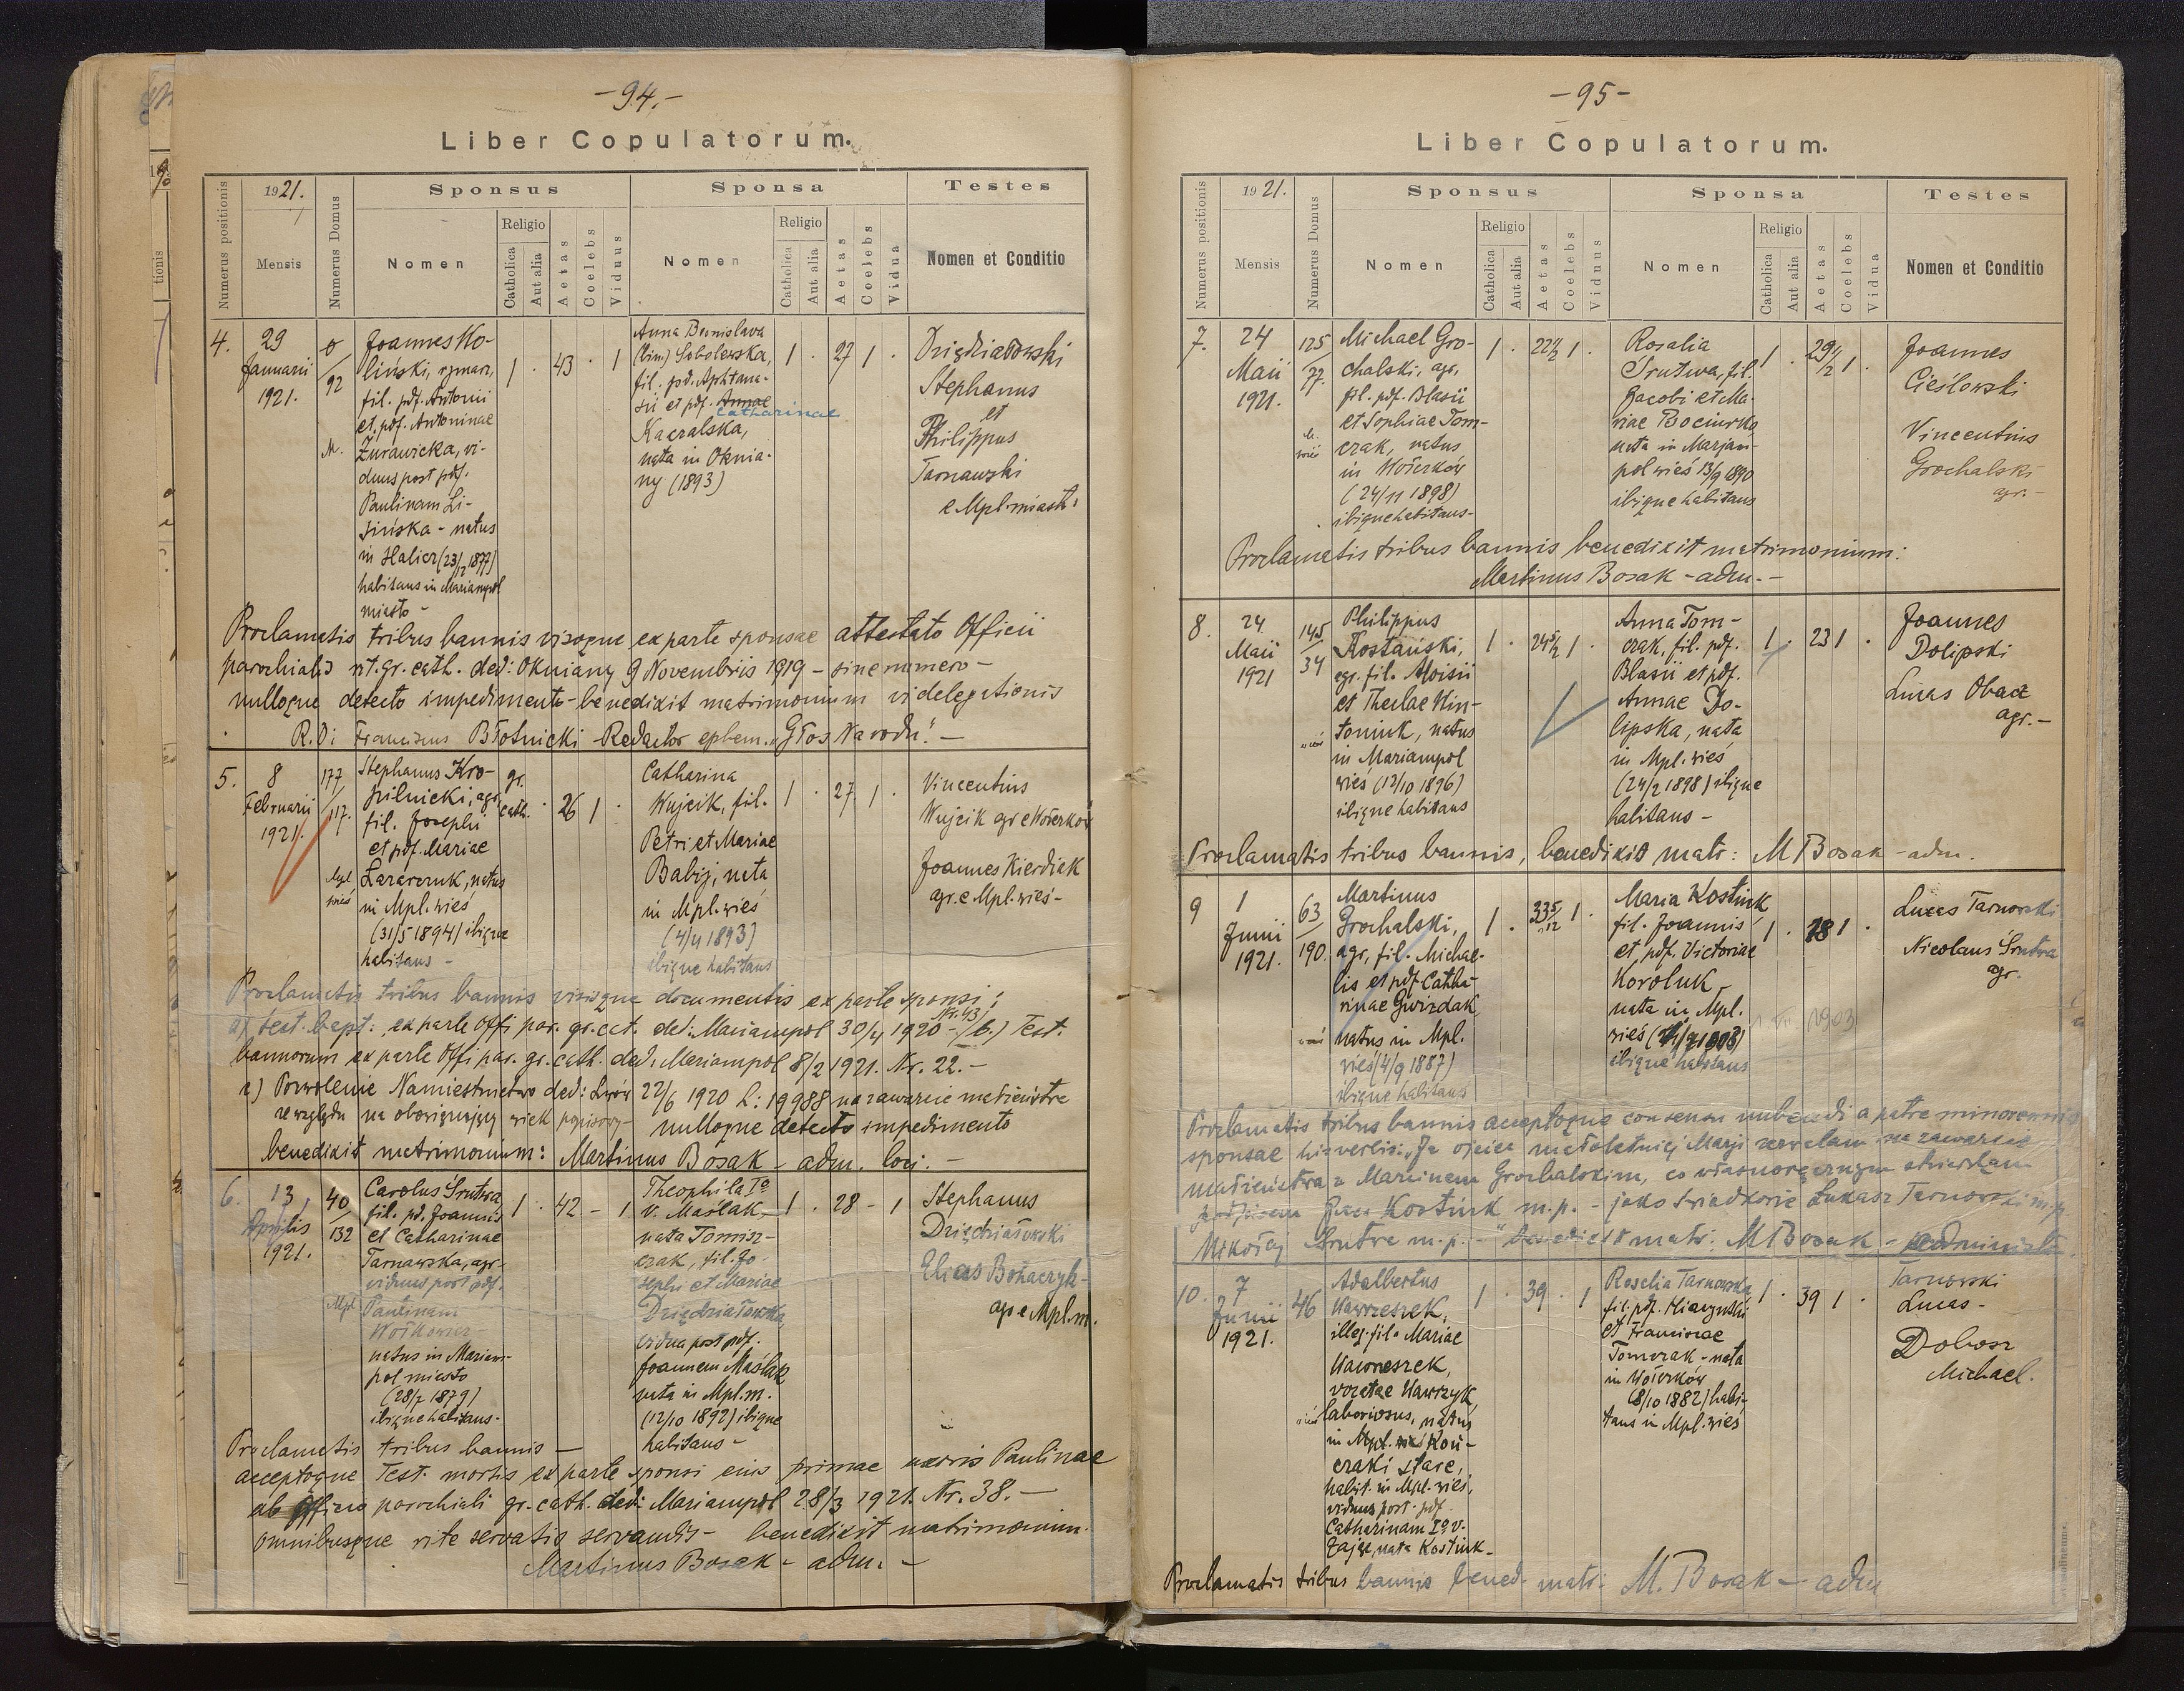 -94.-
Liber Copulatorum.
Numerus positionis
1921.
Mensis
Numerus Domus
Sponsus
Nomen
Religio
Catholica
Aut alia
Aetas
Coelebs
Viduus
Sponsa
Nomen
Religio
Catholica
Aut alia
Aetas
Coelebs
Vidua
Testes
Nomen et Conditio
4.
29
Januarii
1921.
0
92
M.
Joannes Wo-
liński, rymarz,
fil. pdf. Antonii
et pdf. Antoninae
Żurawicka, vi-
duus post pdf.
Paulinam Li-
sińska - natus
in Halicz (23/12 1877)
habitans in Mariampol
miasto -
1 . 43 . 1
Anna Bronislava
(bin) Sobolewska,
fil. pdf. Aphtana-
sii et pdf. Annae
Catharinae
Kaczalska,
nata in Oknia-
ny (1893)
1 . 27 1 .
Dziędziałowski
Stephanus
et
Philippus
Tarnawski
e Mpl. miasto
Proclamatis tribus bannis visoque ex parte sponsae attestato Officii
parochialis rit. gr. cath. ded: Okniany 9 Novembris 1919 - sine numero -
nulloque detecto impedimento - benedixit matrimonium vi delegationis
R. D: Franciscus Błotnicki - Redactor ephem. "Głos Narodu". -
5.
8
Februarii
1921.
177
117.
Mpl
wieś
Stephanus Kro-
pilnicki, agr.
fil. Josephi
et pdf. Mariae
Łazarczuk, natus
in Mpl. wieś
(31/5 1894) ibique
habitans -
gr.
cath. . 26 1 .
Catharina
Wujcik, fil.
Petri et Mariae
Babij, nata
in Mpl. wieś
(4/4 1893)
ibique habitans
1 . 27 1 .
Vincentius
Wujcik agr e Wołczków
Joannes Kierdiak
agr. e Mpl. wieś -
Proclamatis tribus bannis visisque documentis ex parte sponsi:
a) test. bapt: ex parte Offi par. gr. cat. ded: Mariampol 30/4 1920 - (Nr. 43) b.) Test.
bannorum ex parte Offi par. gr. cath. ded: Mariampol 8/2 1921. Nr. 22. -
c) Pozwolenie Namiestnictwo ded: Lwów 22/6 1920 L: 19988 na zawarcie małżeństwa
ze względu na obowiązujący wiek popisowy - nulloque detecto impedimento
benedixit matrimonium: Martinus Bosak - adm. loci. -
6.
13
Aprilis
1921.
40
132
Mpl
Carolus Śrutwa
fil. pd. Joannis
et Catharinae
Tarnawska, agr-
viduus post pdf.
Paulinam
Wołkowicz -
natus in Mariam-
pol miasto
(28/7 1879)
ibique habitans.
1 . 42 - 1
Theophila I°
v. Maślak,
nata Tomisz-
czak, fil. Jo-
sephi et Mariae
Dziędziałowska,
vidua post pdf.
Joannem Maślak
nata in Mpl. m.
(12/10 1892) ibique
habitans -
1 . 28 - 1
Stephanus
Dziędziałowski
Elias Bohaczyk -
agr e Mpl. m.
Proclamatis tribus bannis -
acceptoque Test. mortis ex parte sponsi eius primae uxoris Paulinae
ab Officio parochiali gr. cath. ded: Mariampol 28/3 1921. Nr. 38. -
omnibusque rite servatis servandis - benedixit matrimonium.
Martinus Bosak - adm. -
-95-
Liber Copulatorum.
Numerus positionis
1921.
Mensis
Numerus Domus
Sponsus
Nomen
Religio
Catholica
Aut alia
Aetas
Coelebs
Viduus
Sponsa
Nomen
Religio
Catholica
Aut alia
Aetas
Coelebs
Vidua
Testes
Nomen et Conditio
7.
24
Maii
1921.
125
77.
wieś
Michael Gro-
chalski, agr,
fil. pdf. Blasii
et Sophiae Tom-
czak, natus
in Wołczków
(24/11 1898)
ibique habitans -
1 . 22 1/2 1 .
Rosalia
Śrutwa, fil.
Jacobi et Ma-
riae Bociurko
nata in Marjam-
pol wieś 13/9 1890
ibique habitans
1 . 29 1/2 1 .
Joannes
Cieślowski
Vincentius
Grochalski
agr. -
Proclamatis tribus bannis benedixit matrimonium:
Martinus Bosak - adm. -
8.
24
Maii
1921
145
34
wieś
Philippus
Kostański,
agr. fil. Aloisii
et Theclae Win-
toniuk, natus
in Mariampol
wieś (12/10 1896)
ibique habitans
1 . 24 5/12 1 .
Anna Tom-
czak, fil. pdf.
Blasii et pdf.
Annae Do-
lipska, nata
in Mpl. wieś
(24/2 1898) ibique
habitans -
1 . 23 1 .
Joannes
Dolipski
Lucas Obacz
agr. -
Proclamatis tribus bannis, benedixit matr: M Bosak - adm.
9
1
Junii
1921.
63
190.
wieś
Martinus
Grochalski,
agr, fil. Michae-
lis et pdf. Catha-
rinae Gwizdak
natus in Mpl.
wieś (4/9 1887)
ibique habitans
1 . 33 5/12 1 .
Maria Kostiuk,
fil. Joannis
et pdf. Victoriae
Koroluk,
nata in Mpl.
wieś
1903
ibique habitans
1 . 18 1 .
Lucas Tarnowski
Nicolaus Śrutwa
agr.
Proclamatis tribus bannis acceptoque consensu nubendi a patre minorennis
sponsae his verbis: "Ja ojciec małoletniej Marji zezwalam na zawarcie
małżeństwa z Marcinem Grochalskim, co własnoręcznym stwierdzam
podpisem Kostiuk m.p. - jako świadkowie Łukasz Tarnowski m.p.
Mikołaj Śrutwa m.p. -" benedixit matr: M Bosak - administr.
10.
7
Junii
1921.
46
wieś
Adalbertus
Wawrzeszek,
illeg. fil. Mariae
Wawrzeszek,
vocatae Wawrzyk,
laboriosus, natus
in Mpl. Koń-
czaki stare,
habit. in Mpl. wieś,
viduus post. pdf.
Catharinam I° v.
Zając, nata Kostiuk -
1 . 39 . 1
Rosalia Tarnowska
fil. pdf.
et Franciscae
Tomczak - nata
in Wołczków
(8/10 1882) habi-
tans in Mpl. wieś
1 . 39 1 .
Tarnowski
Lucas -
Dobosz
Michael.
Proclamatis tribus bannis bened. matr: M. Bosak - adm